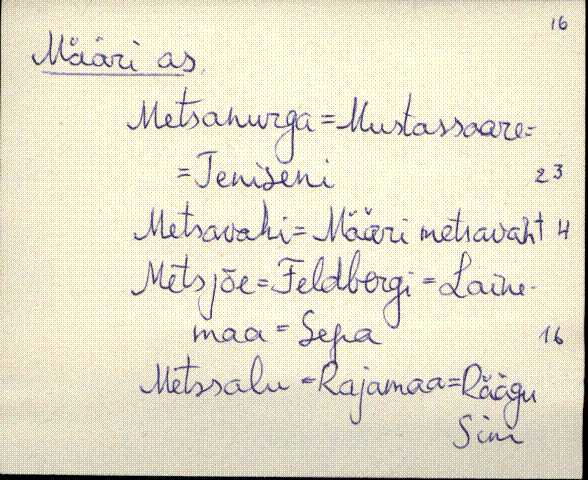 16
Määri as.
Metsanurga = Mustassaare =
= Teniseni 23
Metsavahi = Määri metsavaht 4
Metsjõe = Feldbergi = Laine-
maa = Sepa 16
Metssalu = Rajamaa = Räägu
Siim